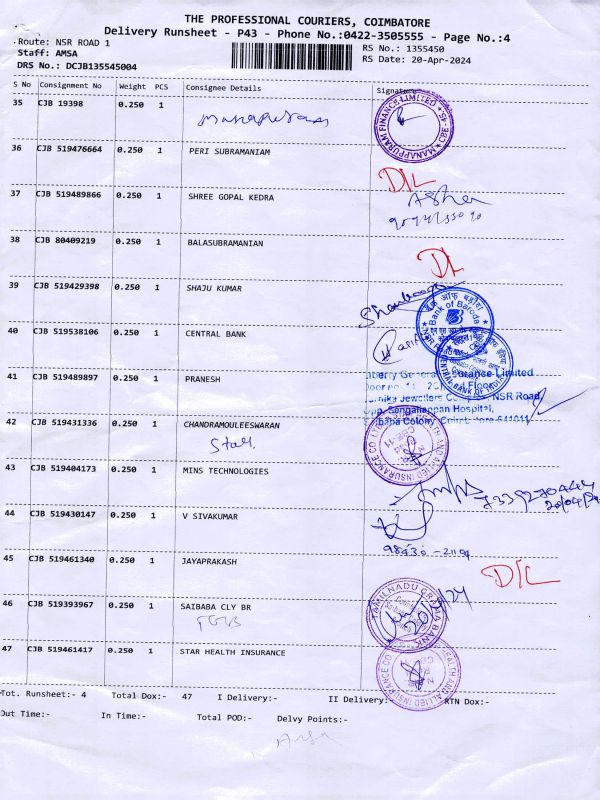 THE PROFESSIONAL COURIERS, COIMBATORE
Delivery Runsheet - P43 - Phone No.:0422-3505555 - Page No.:4
Route: NSR ROAD 1
RS No.: 1355450
Staff: AMSA
RS Date: 20-Apr-2024
DRS No.: DCJB135545004
S No Consignment No Weight PCS Consignee Details Signature
35 CJB 19398 0.250 1
MANAPPURAM FINANCE LIMITED
36 CJB 519476664 0.250 1 PERI SUBRAMANIAM
D/L
37 CJB 519489866 0.250 1 SHREE GOPAL KEDRA
38 CJB 80409219 0.250 1 BALASUBRAMANIAN
DL
39 CJB 519429398 0.250 1 SHAJU KUMAR
बैंक ऑफ़ बड़ौदा
Bank of Baroda
40 CJB 519538106 0.250 1 CENTRAL BANK
CENTRAL BANK OF INDIA
41 CJB 519489897 0.250 1 PRANESH
General Insurance Limited
Floor
Jewellers NSR Road,
Hospital,
Colony
42 CJB 519431336 0.250 1 CHANDRAMOULEESWARAN
Star
43 CJB 519404173 0.250 1 MINS TECHNOLOGIES
20/04/24
44 CJB 519430147 0.250 1 V SIVAKUMAR
45 CJB 519461340 0.250 1 JAYAPRAKASH
D/L
46 CJB 519393967 0.250 1 SAIBABA CLY BR
TAMILNADU GRAMA BANK
47 CJB 519461417 0.250 1 STAR HEALTH INSURANCE
HEALTH AND ALLIED INSURANCE CO
Tot. Runsheet:- 4 Total Dox:- 47 I Delivery:- II Delivery:- RTN Dox:-
Out Time:- In Time:- Total POD:- Delvy Points:-
Amsa